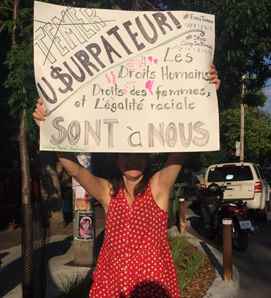 TEMER
U$URPATEUR!
Les
Droits Humains
Droits des femmes,
et l'égalité raciale
SONT à NOUS